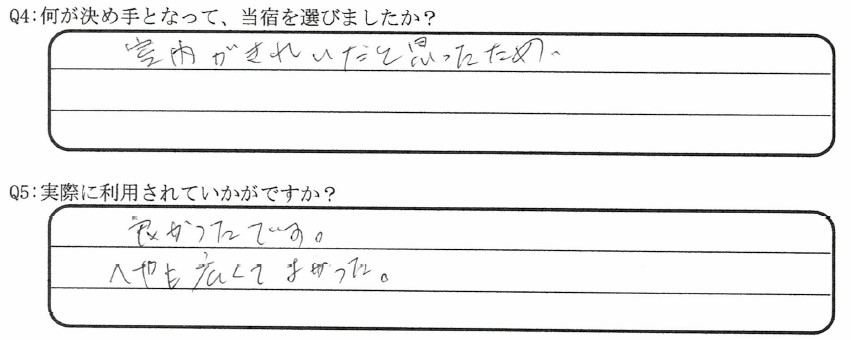 Q4:何が決め手となって、当宿を選びましたか？
室内がきれいだと思ったため、
Q5:実際に利用されていかがですか？
良かったです。
へやも広くてよかった。